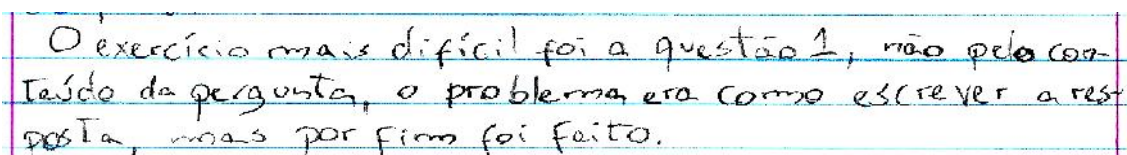 O exercício mais difícil foi a questão 1, não pelo con-
teúdo da pergunta, o problema era como escrever a res-
posta, mas por fim foi feito.